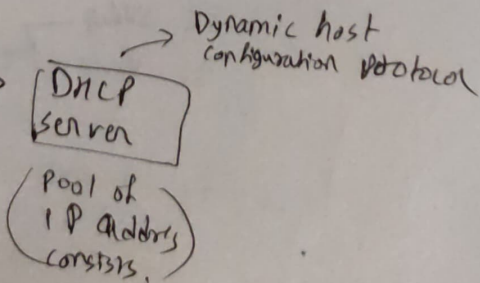 Dynamic host
configuration protocol
DHCP
server
(Pool of
IP address
consists.)